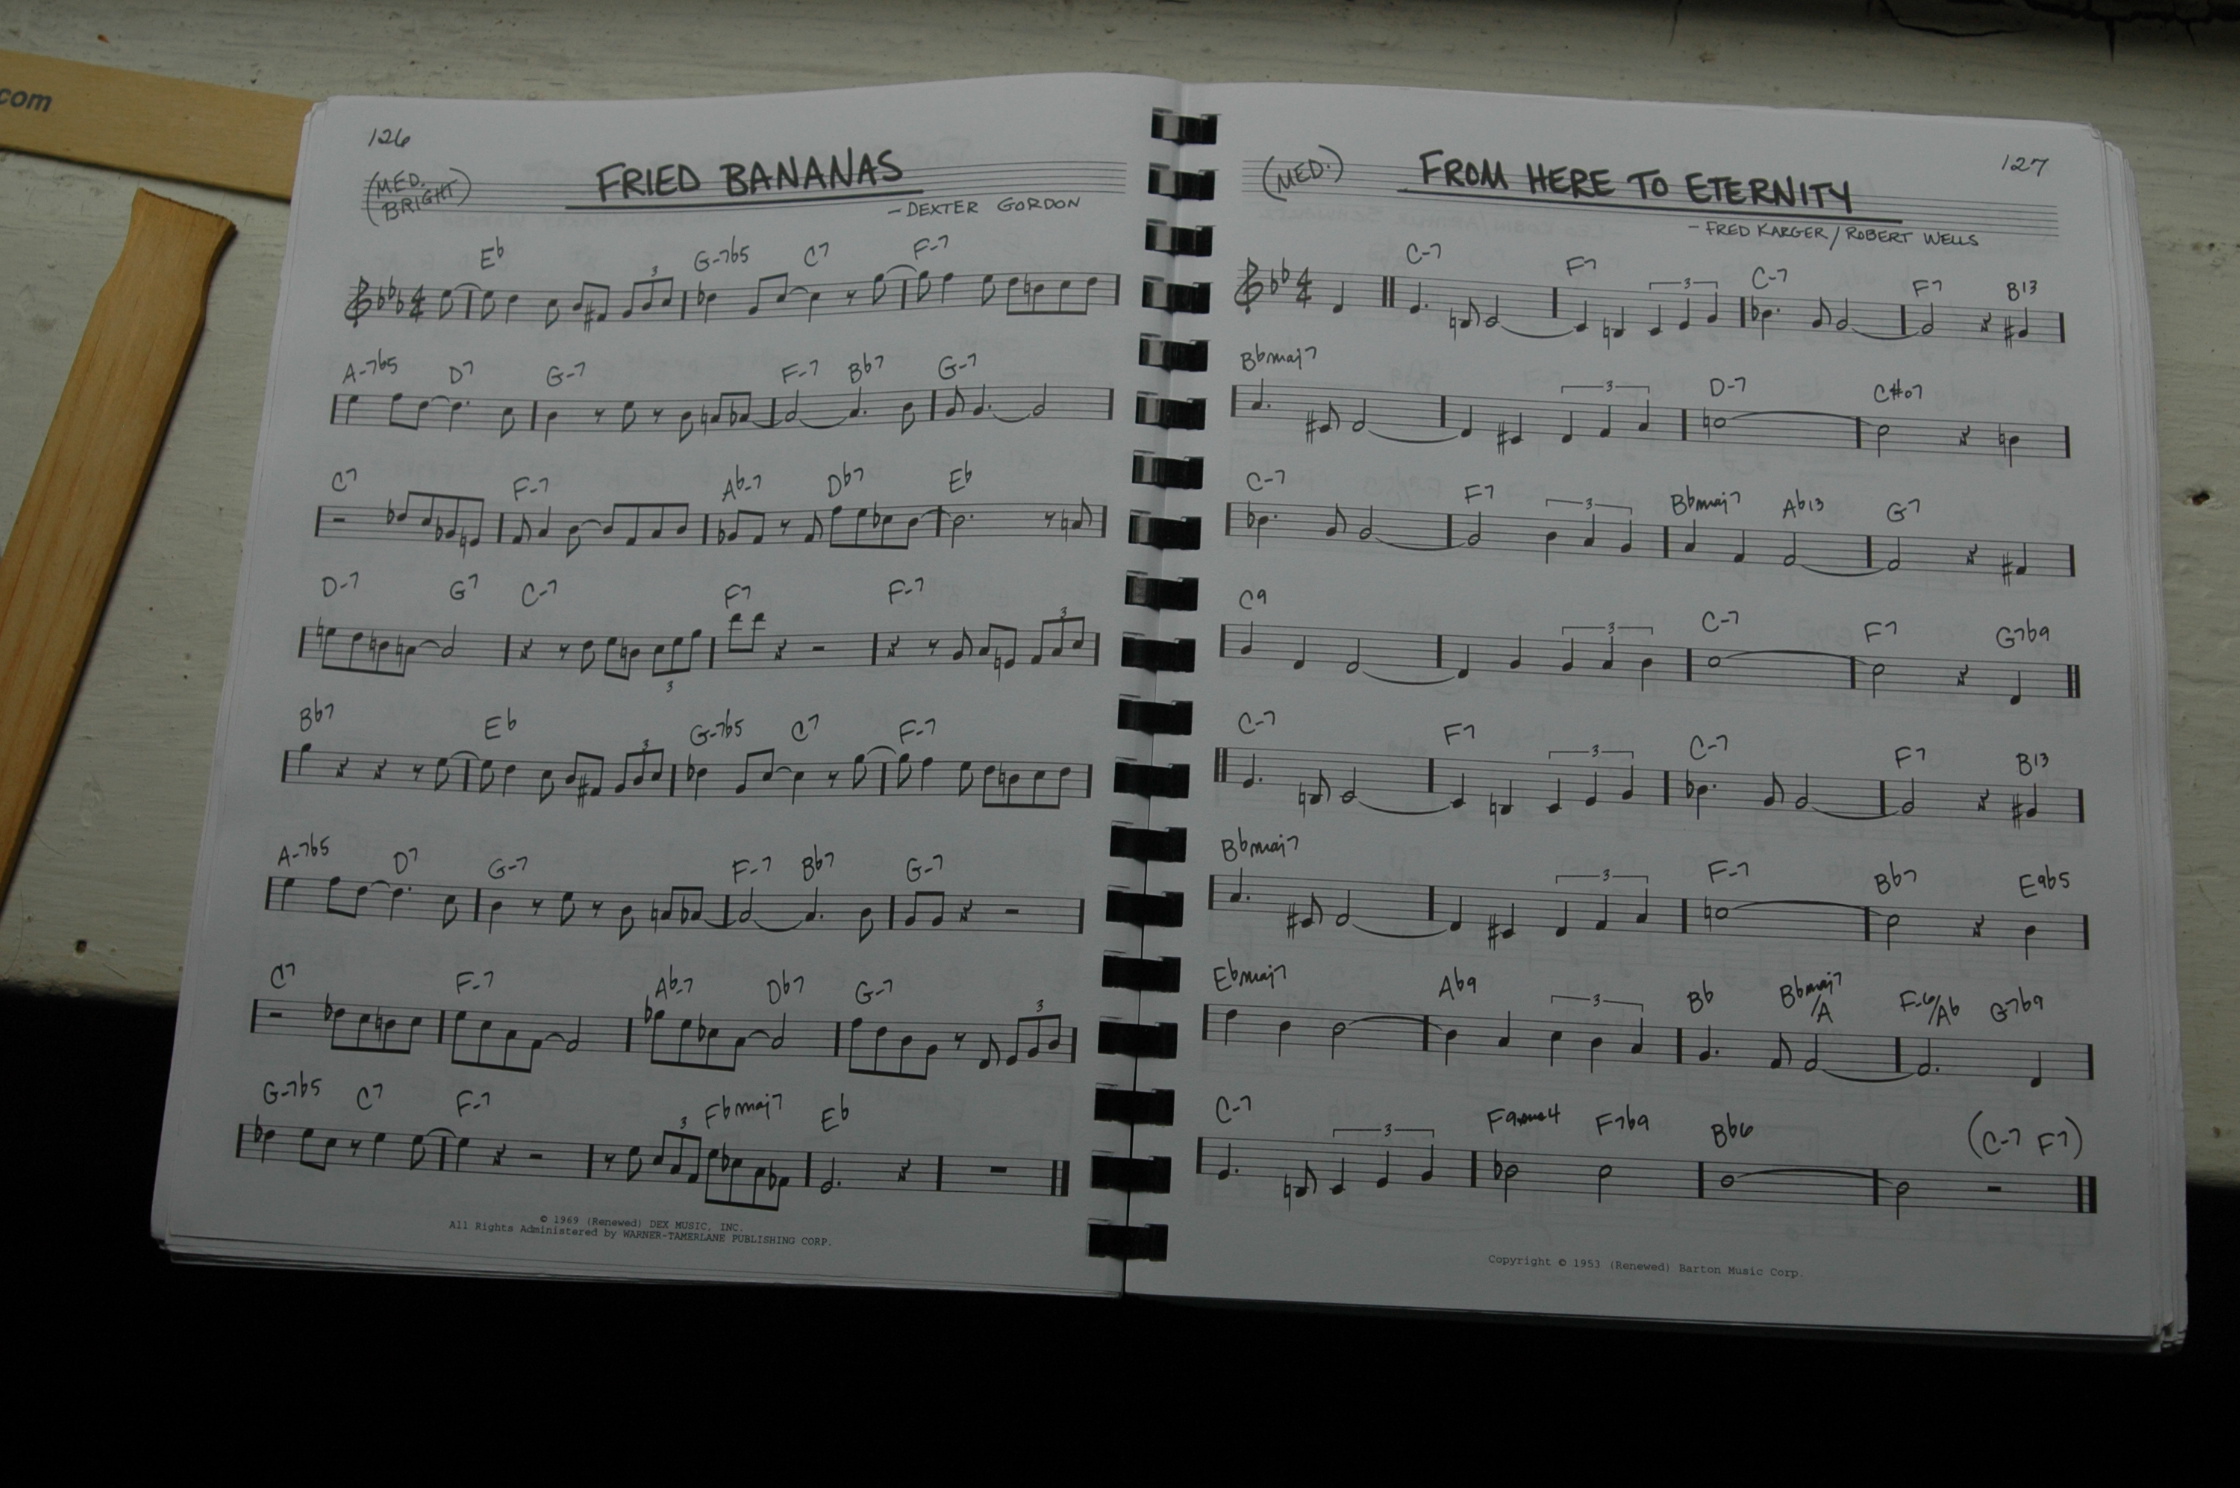 com
126
(MED. BRIGHT)
FRIED BANANAS
- DEXTER GORDON
Eb G-7b5 C7 F-7
3
A-7b5 D7 G-7 F-7 Bb7 G-7
C7 F-7 Ab-7 Db7 Eb
D-7 G7 C-7 F7 F-7
3 3
Bb7 Eb G-7b5 C7 F-7
3
A-7b5 D7 G-7 F-7 Bb7 G-7
C7 F-7 Ab-7 Db7 G-7
3
G-7b5 C7 F-7 Fbmaj7 Eb
3
© 1969 (Renewed) DEX MUSIC, INC.
All Rights Administered by WARNER-TAMERLANE PUBLISHING CORP.
127
(MED.)
FROM HERE TO ETERNITY
- FRED KARGER/ROBERT WELLS
C-7 F7 C-7 F7 B13
3
Bbmaj7 D-7 C#o7
3
C-7 F7 Bbmaj7 Ab13 G7
3
C9 C-7 F7 G7b9
3
C-7 F7 C-7 F7 B13
3
Bbmaj7 F-7 Bb7 E9b5
3
Ebmaj7 Ab9 Bb Bbmaj7/A F-6/Ab G7b9
3
C-7 F9sus4 F7b9 Bb6 (C-7 F7)
3
Copyright © 1953 (Renewed) Barton Music Corp.